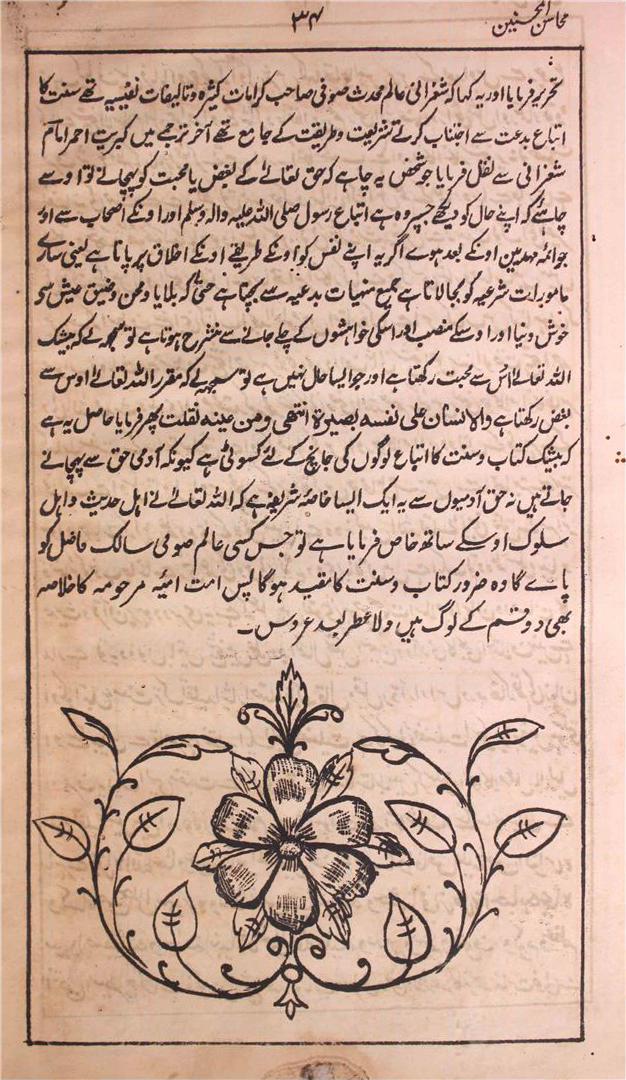 محاسن المحسنین
۳۴
تحریر فرمایا اور یہ کہا کہ شعرانی عالم محدث صوفی صاحب کرامات کثیرہ و تالیفات نفیسہ تھے سنت کا
اتباع بدعت سے اجتناب کرتے شریعت و طریقت کے جامع تھے آخر ترجمے میں کبریت احمر امام
شعرانی سے نقل فرمایا جو شخص یہ چاہے کہ حق تعالے کے بغض یا محبت کو پہچانے تو اوسے
چاہئے کہ اپنے حال کو دیکھے جسپر وہ ہے اتباع رسول صلی اللہ علیہ والہ وسلم اور اونکے اصحاب سے اور
جو ائمہ مہدیین اونکے بعد ہوے اگر یہ اپنے نفس کو اونکے طریقے اونکے اخلاق پر پاتا ہے یعنی ساری
مامورات شرعیہ کو بجا لاتا ہے جمیع منہیات بدعیہ سے بچتا ہے حتی کہ بلایا و محن و ضیق عیش سے
خوش دنیا اور اوسکے منصب اور اسکی خواہشوں کے چلے جانے سے منشرح ہوتا ہے تو سمجھ لے کہ بیشک
اللہ تعالے اس سے محبت رکھتا ہے اور جو ایسا حال نہیں ہے تو سمجھ لے کہ مقرر اللہ تعالے اوس سے
بغض رکھتا ہے والانسان علی نفسه بصیرة انتهی ومن عینه نقلت پھر فرمایا حاصل یہ ہے
کہ بیشک کتاب و سنت کا اتباع لوگوں کی جانچ کے لئے کسوٹی ہے کیونکہ آدمی حق سے پہچانے
جاتے ہیں نہ حق آدمیوں سے یہ ایک ایسا خاصہ شریفہ ہے کہ اللہ تعالے نے اہل حدیث و اہل
سلوک اوسکے ساتھ خاص فرمایا ہے تو جس کسی عالم صوفی سالک فاضل کو
پاے گا وہ ضرور کتاب و سنت کا مقید ہوگا پس امت امیہ مرحومہ کا خلاصہ
بھی دو قسم کے لوگ ہیں ولا عطر بعد عروس۔